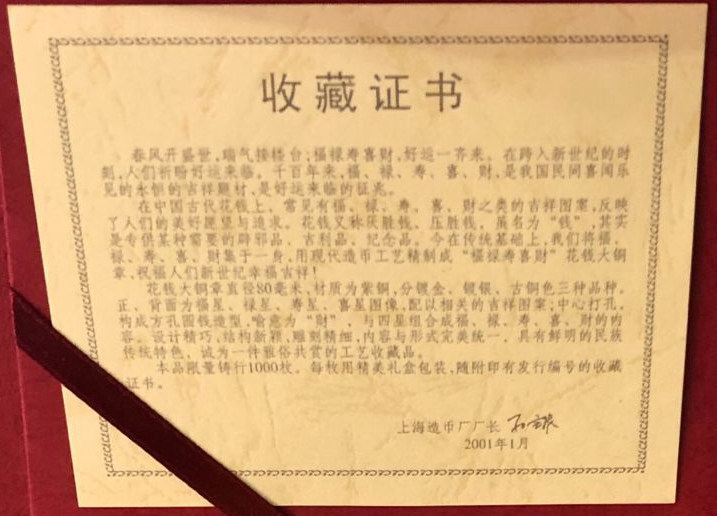 收藏证书
春风开盛世,瑞气接楼台;福禄寿喜财,好运一齐来。在跨入新世纪的时
刻,人们祈盼好运来临。千百年来,福、禄、寿、喜、财,是我国民间喜闻乐
见的永恒的吉祥题材,是好运来临的征兆。
在中国古代花钱上,常见有福、禄、寿、喜、财之类的吉祥图案,反映
了人们的美好愿望与追求。花钱又称厌胜钱、压胜钱,虽名为“钱”,其实
是专供某种需要的辟邪品、吉利品、纪念品。今在传统基础上,我们将福、
禄、寿、喜、财集于一身,用现代造币工艺精制成“福禄寿喜财”花钱大铜
章,祝福人们新世纪幸福吉祥!
花钱大铜章直径80毫米,材质为紫铜,分镀金、镀银、古铜色三种品种。
正、背面为福星、禄星、寿星、喜星图像,配以相关的吉祥图案;中心打孔,
构成方孔圆钱造型,喻意为“财”,与四星组合成福、禄、寿、喜、财的内
容。设计精巧,结构新颖,雕刻精细,内容与形式完美统一,具有鲜明的民族
传统特色,诚为一件雅俗共赏的工艺收藏品。
本品限量铸行1000枚。每枚用精美礼盒包装,随附印有发行编号的收藏
证书。
上海造币厂厂长
2001年1月